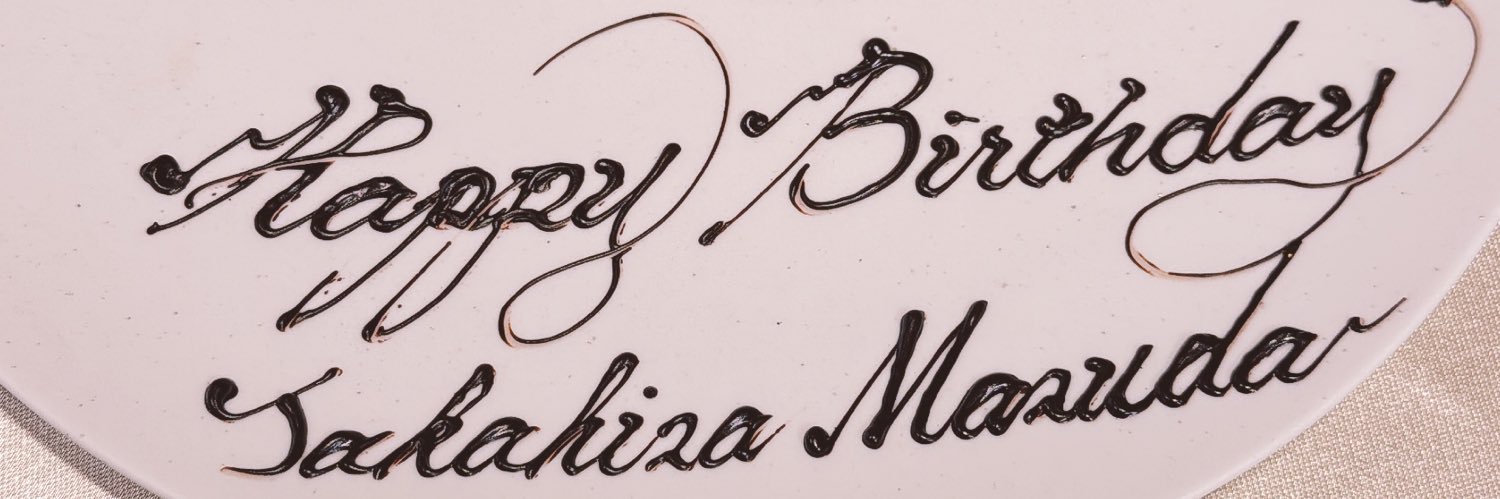 Happy Birthday
Takahisa Masuda